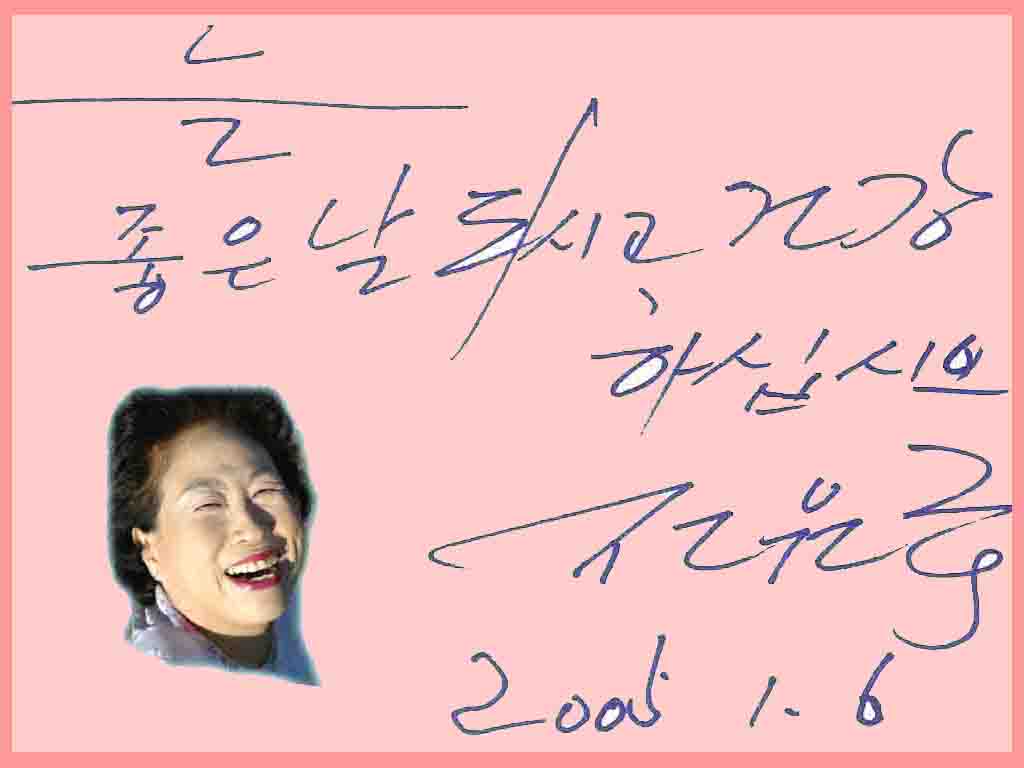 늘
좋은 날 되시고 건강
하십시오
2005 1. 6